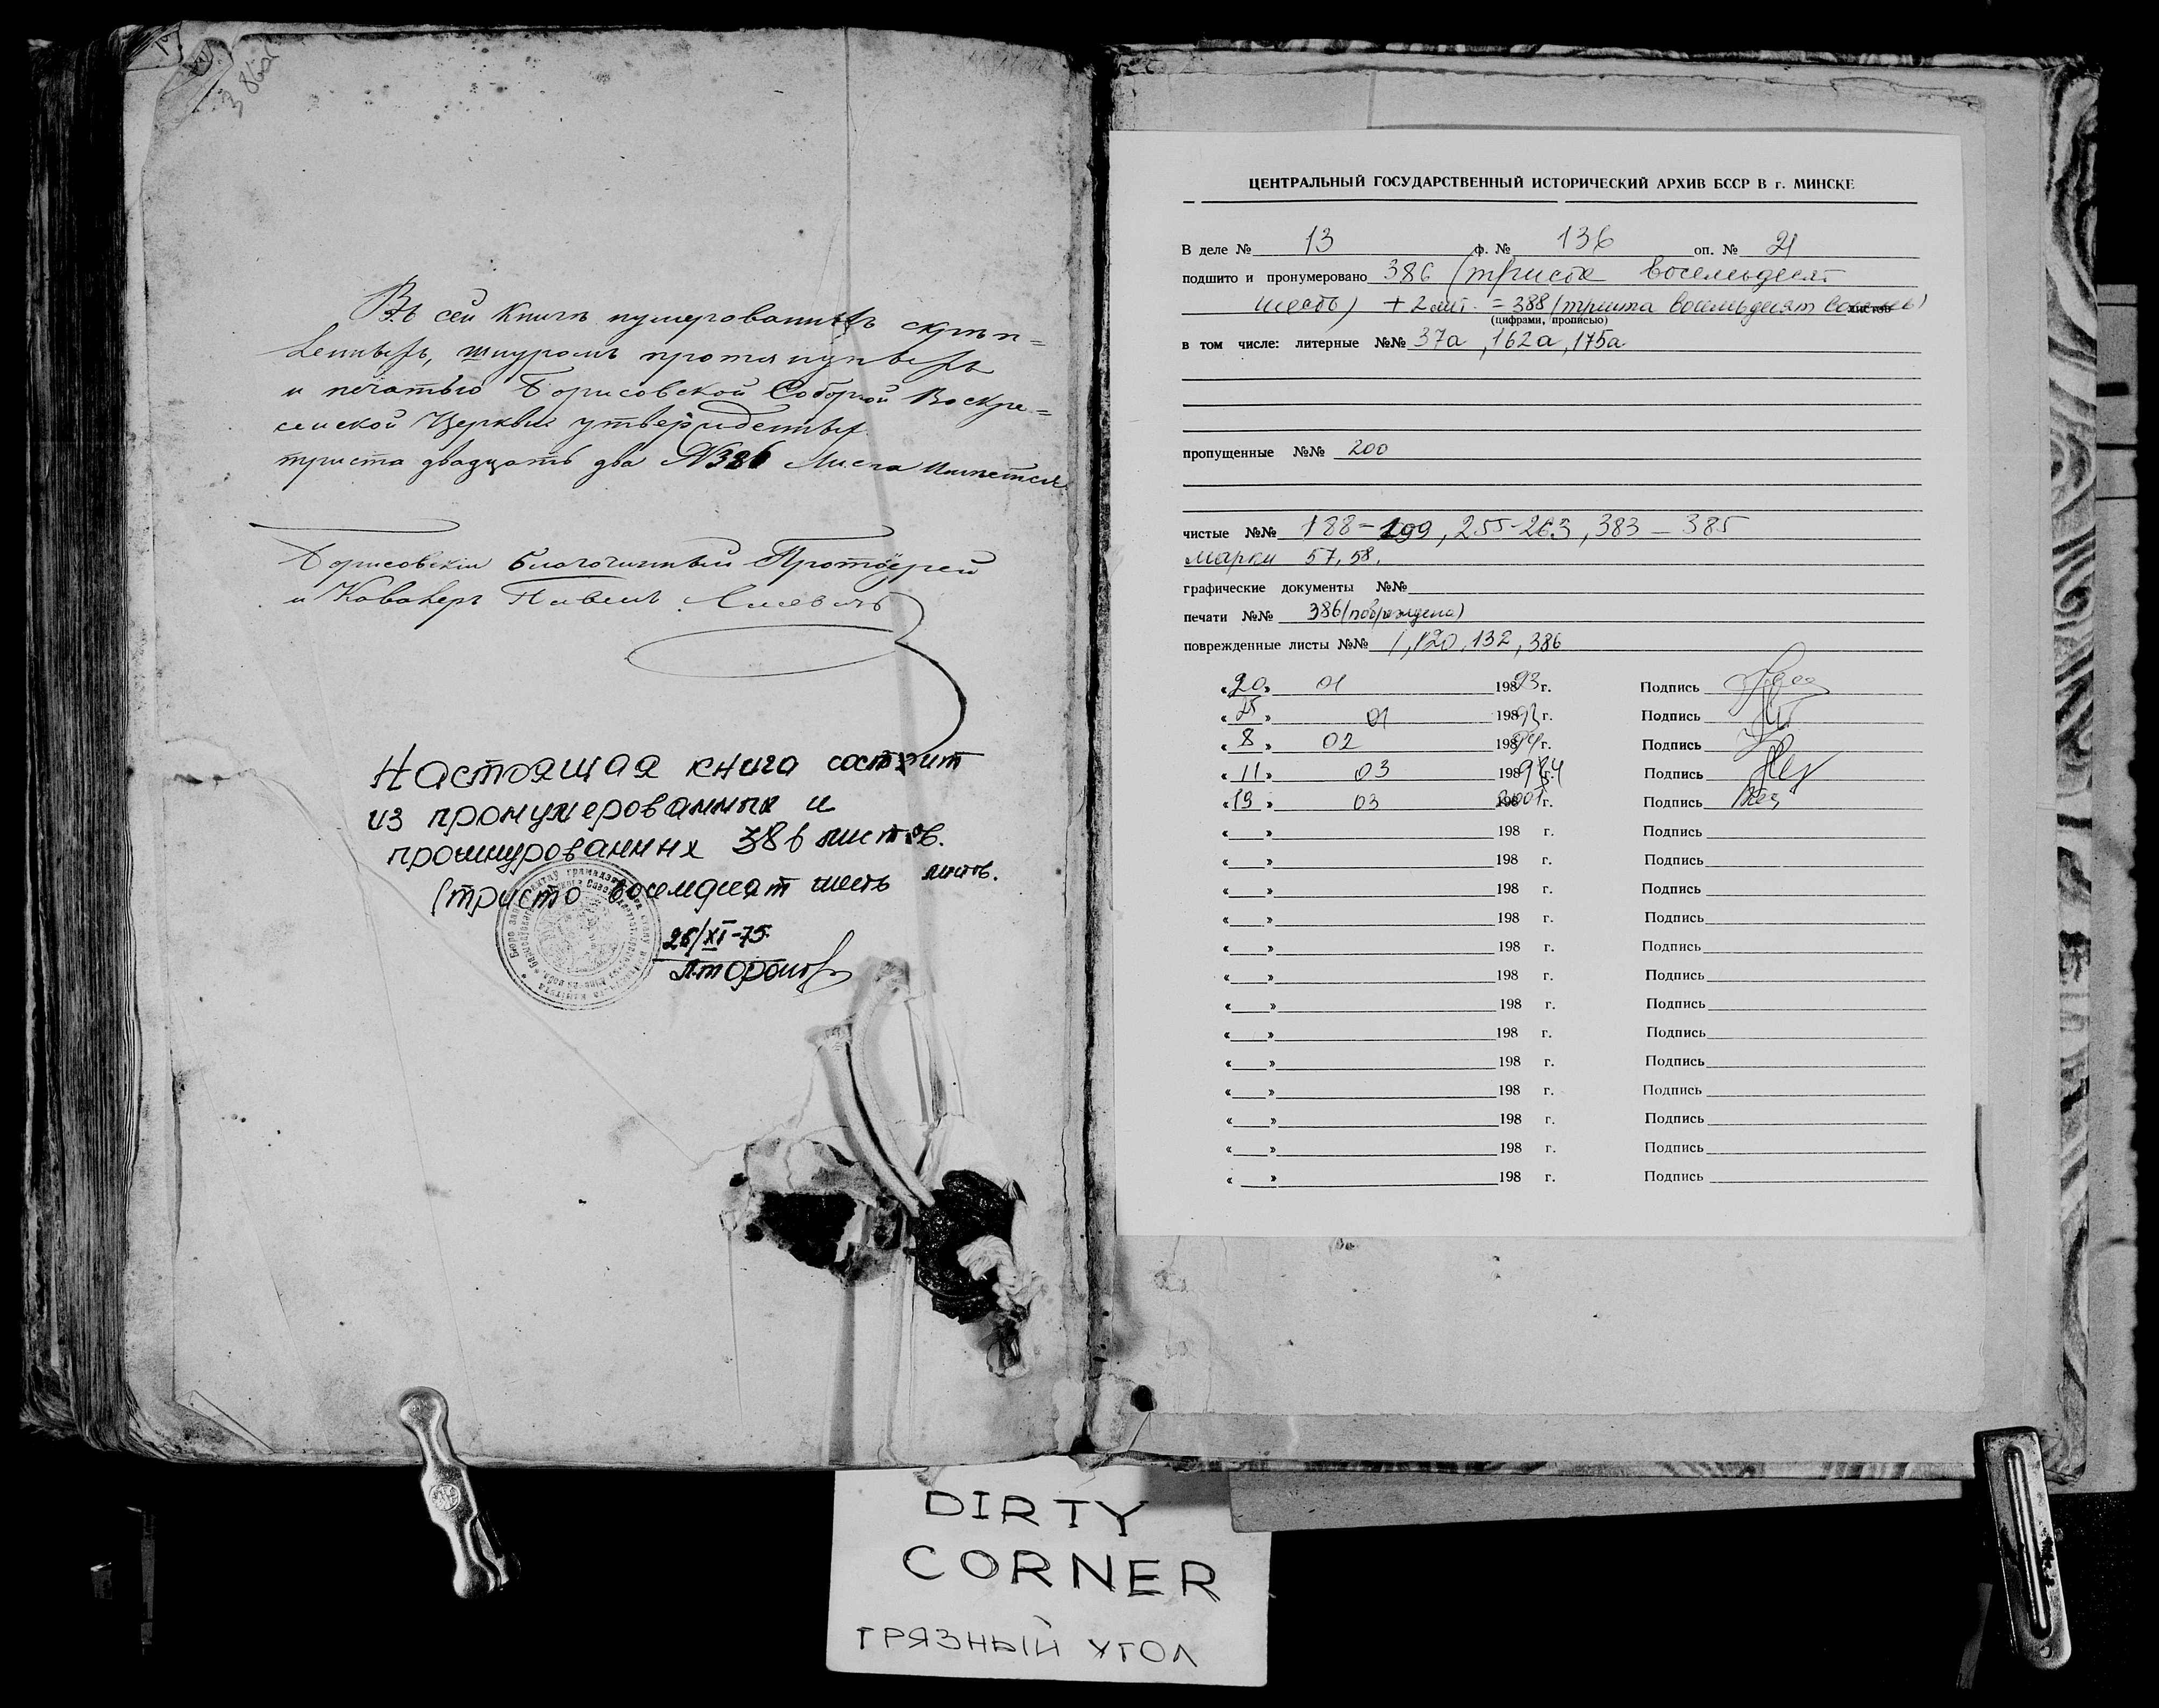 386об
Въ сей Книгѣ нумерованныхъ скрѣп=
ленныхъ, шнуромъ протянутыхъ
и печатью Борисовской Соборной Воскре=
сенской Церкви утвержденныхъ
триста двадцать два №386 Листа имѣется
Борисовскій Благочинный Протоіерей
и Кавалеръ Павелъ
Настоящая книга состоит
из пронумерованных и
прошнурованных 386 листов.
(тристо восемдесят шесть листв.
26/XI-75
ЦЕНТРАЛЬНЫЙ ГОСУДАРСТВЕННЫЙ ИСТОРИЧЕСКИЙ АРХИВ БССР В г. МИНСКЕ
В деле № 13 ф. № 136 оп. № 21
подшито и пронумеровано 386 (триста восемьдесят
шесть) + 2 лит. = 388 (триста восемьдесят восемь) листов
(цифрами, прописью)
в том числе: литерные №№ 37а, 162а, 175а
пропущенные №№ 200
чистые №№ 188-199, 255-263, 383-385
марки 57, 58.
графические документы №№
печати №№ 386 (повреждена)
поврежденные листы №№ 1, 120, 132, 386
«20» 01 19893 г. Подпись
«25» 01 198 г. Подпись
«8» 02 19894 г. Подпись
«11» 03 198 г. Подпись
«19» 03 2001 г. Подпись
« » 198 г. Подпись
« » 198 г. Подпись
« » 198 г. Подпись
« » 198 г. Подпись
« » 198 г. Подпись
« » 198 г. Подпись
« » 198 г. Подпись
« » 198 г. Подпись
« » 198 г. Подпись
« » 198 г. Подпись
« » 198 г. Подпись
« » 198 г. Подпись
« » 198 г. Подпись
DIRTY
CORNER
ГРЯЗНЫЙ УГОЛ